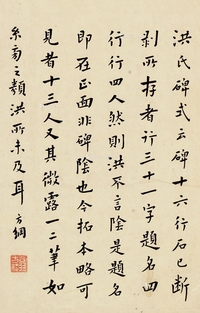 洪氏碑式云碑十六行石已斷
剥所存者行三十一字題名四
行行四人然則洪不言陰是題名
即在正面非碑陰也今拓本略可
見者十三人又其微露一二筆如
糸旁之類洪所未及耳方綱